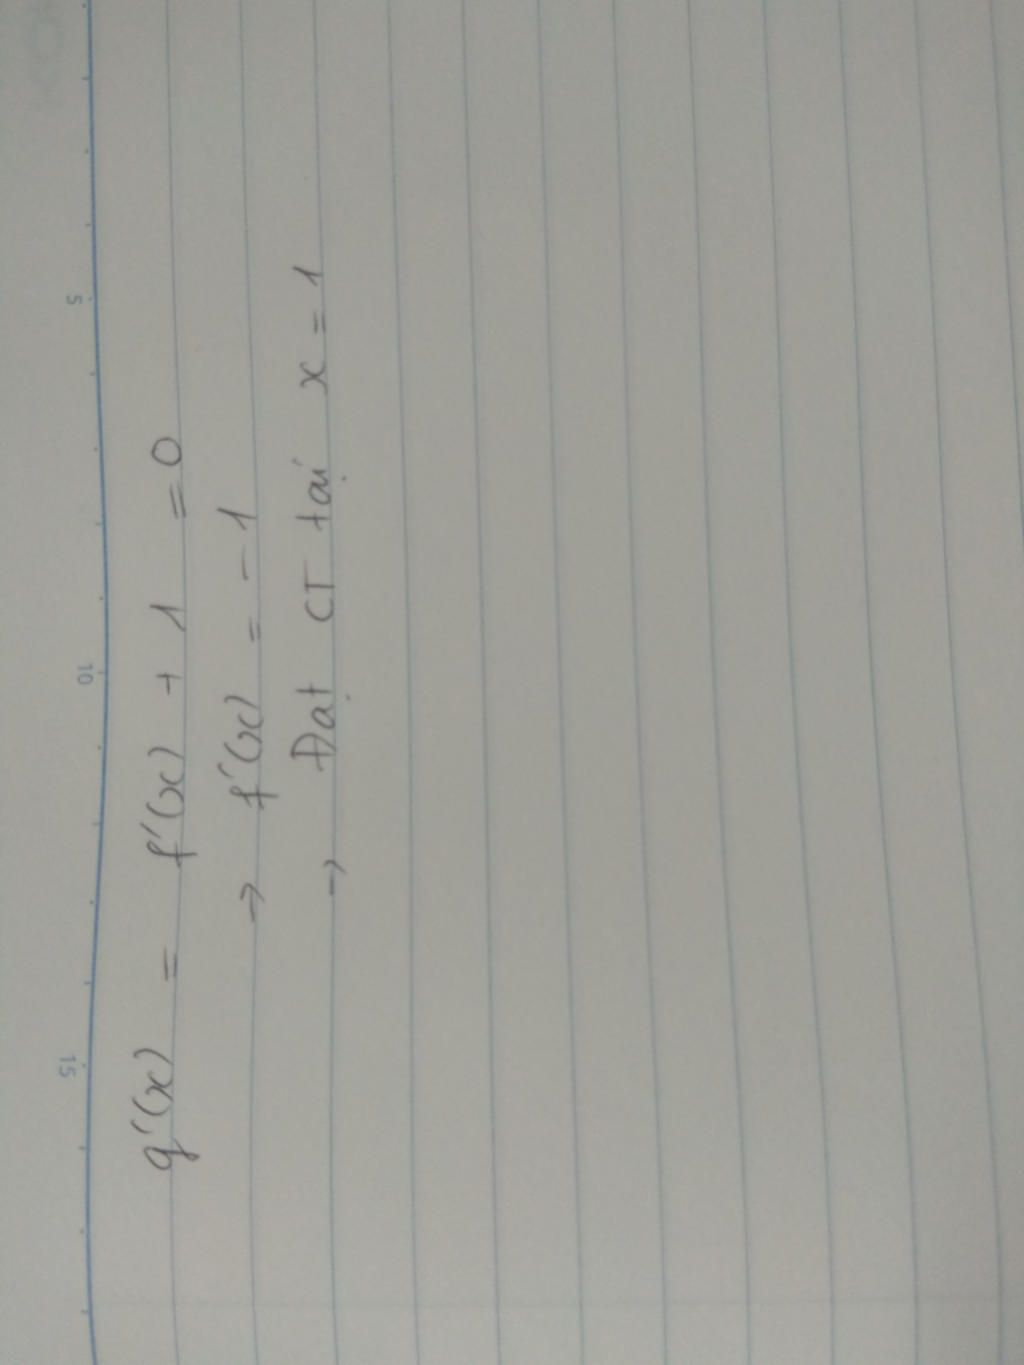 g'(x) = f'(x) + 1 = 0
→ f'(x) = -1
→ Đạt CT tại x = 1
5
10
15